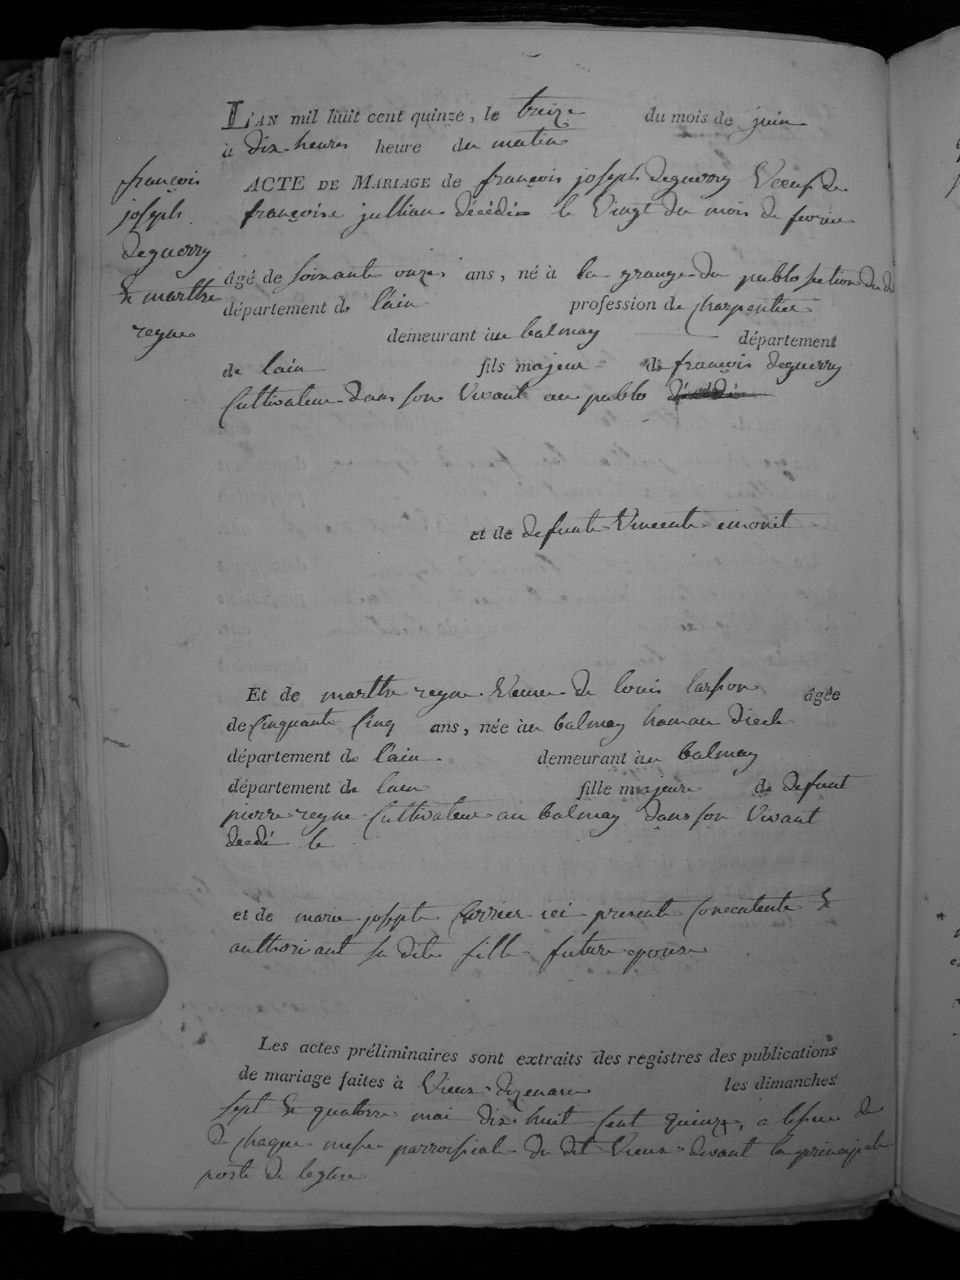 L'AN mil huit cent quinze, le treize du mois de juin
à dix heures heure du matin
françois
joseph
deguerry
& marthe
reyne
ACTE DE MARIAGE de françois joseph Deguerry Veeuf de
françoise jullian décédée le Vingt du mois de fevrier
âgé de soixante onze ans, né à la grange du pablo section du dit
département de l'ain profession de charpentier
demeurant àu balmay département
de lain fils majeur de françois deguerry
Cultivateur dans son Vivant au pablo
et de defunte Vincente emonit
Et de marthe reyne Veuve de louis larson âgée
de Cinquante Cinq ans, née àu balmay hamau
département de l'ain demeurant àu balmay
département de lain fille majeure de defunt
pierre reyne Cultivateur au balmay dans son Vivant
decedé le
et de marie josephte Carrier ici presente &
authorisant sa dite fille future epouse
Les actes préliminaires sont extraits des registres des publications
de mariage faites à Vieux dizenave les dimanches
sept & quatorze mai dix huit cent quinze, a lissue de
de chaque messe parroissiale du dit Vieux devant la principale
porte de leglise